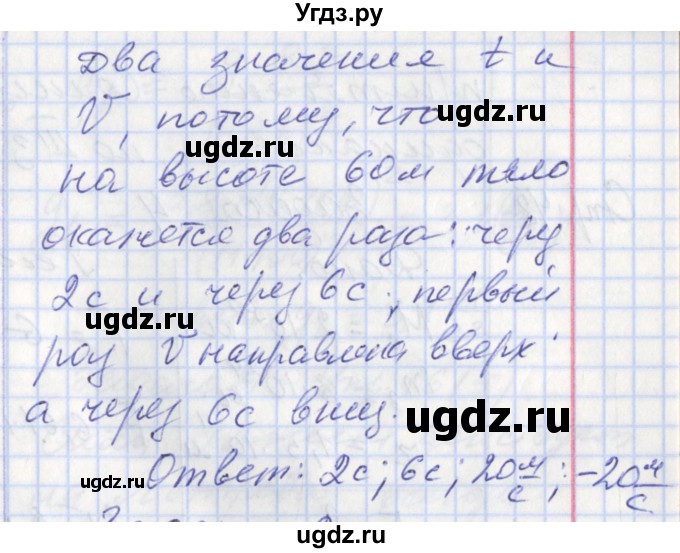 Угдз.ру
два значения t и
V, потому, что
ugdz.ru ugdz.ru
на высоте 60м тело
окажется два раза: через
2с и через 6с, первый
ugdz.ru ugdz.ru
раз V направлена вверх
а через 6с вниз.
ugdz.ru ugdz.ru
Ответ: 2с; 6с; 20 м/с; -20 м/с